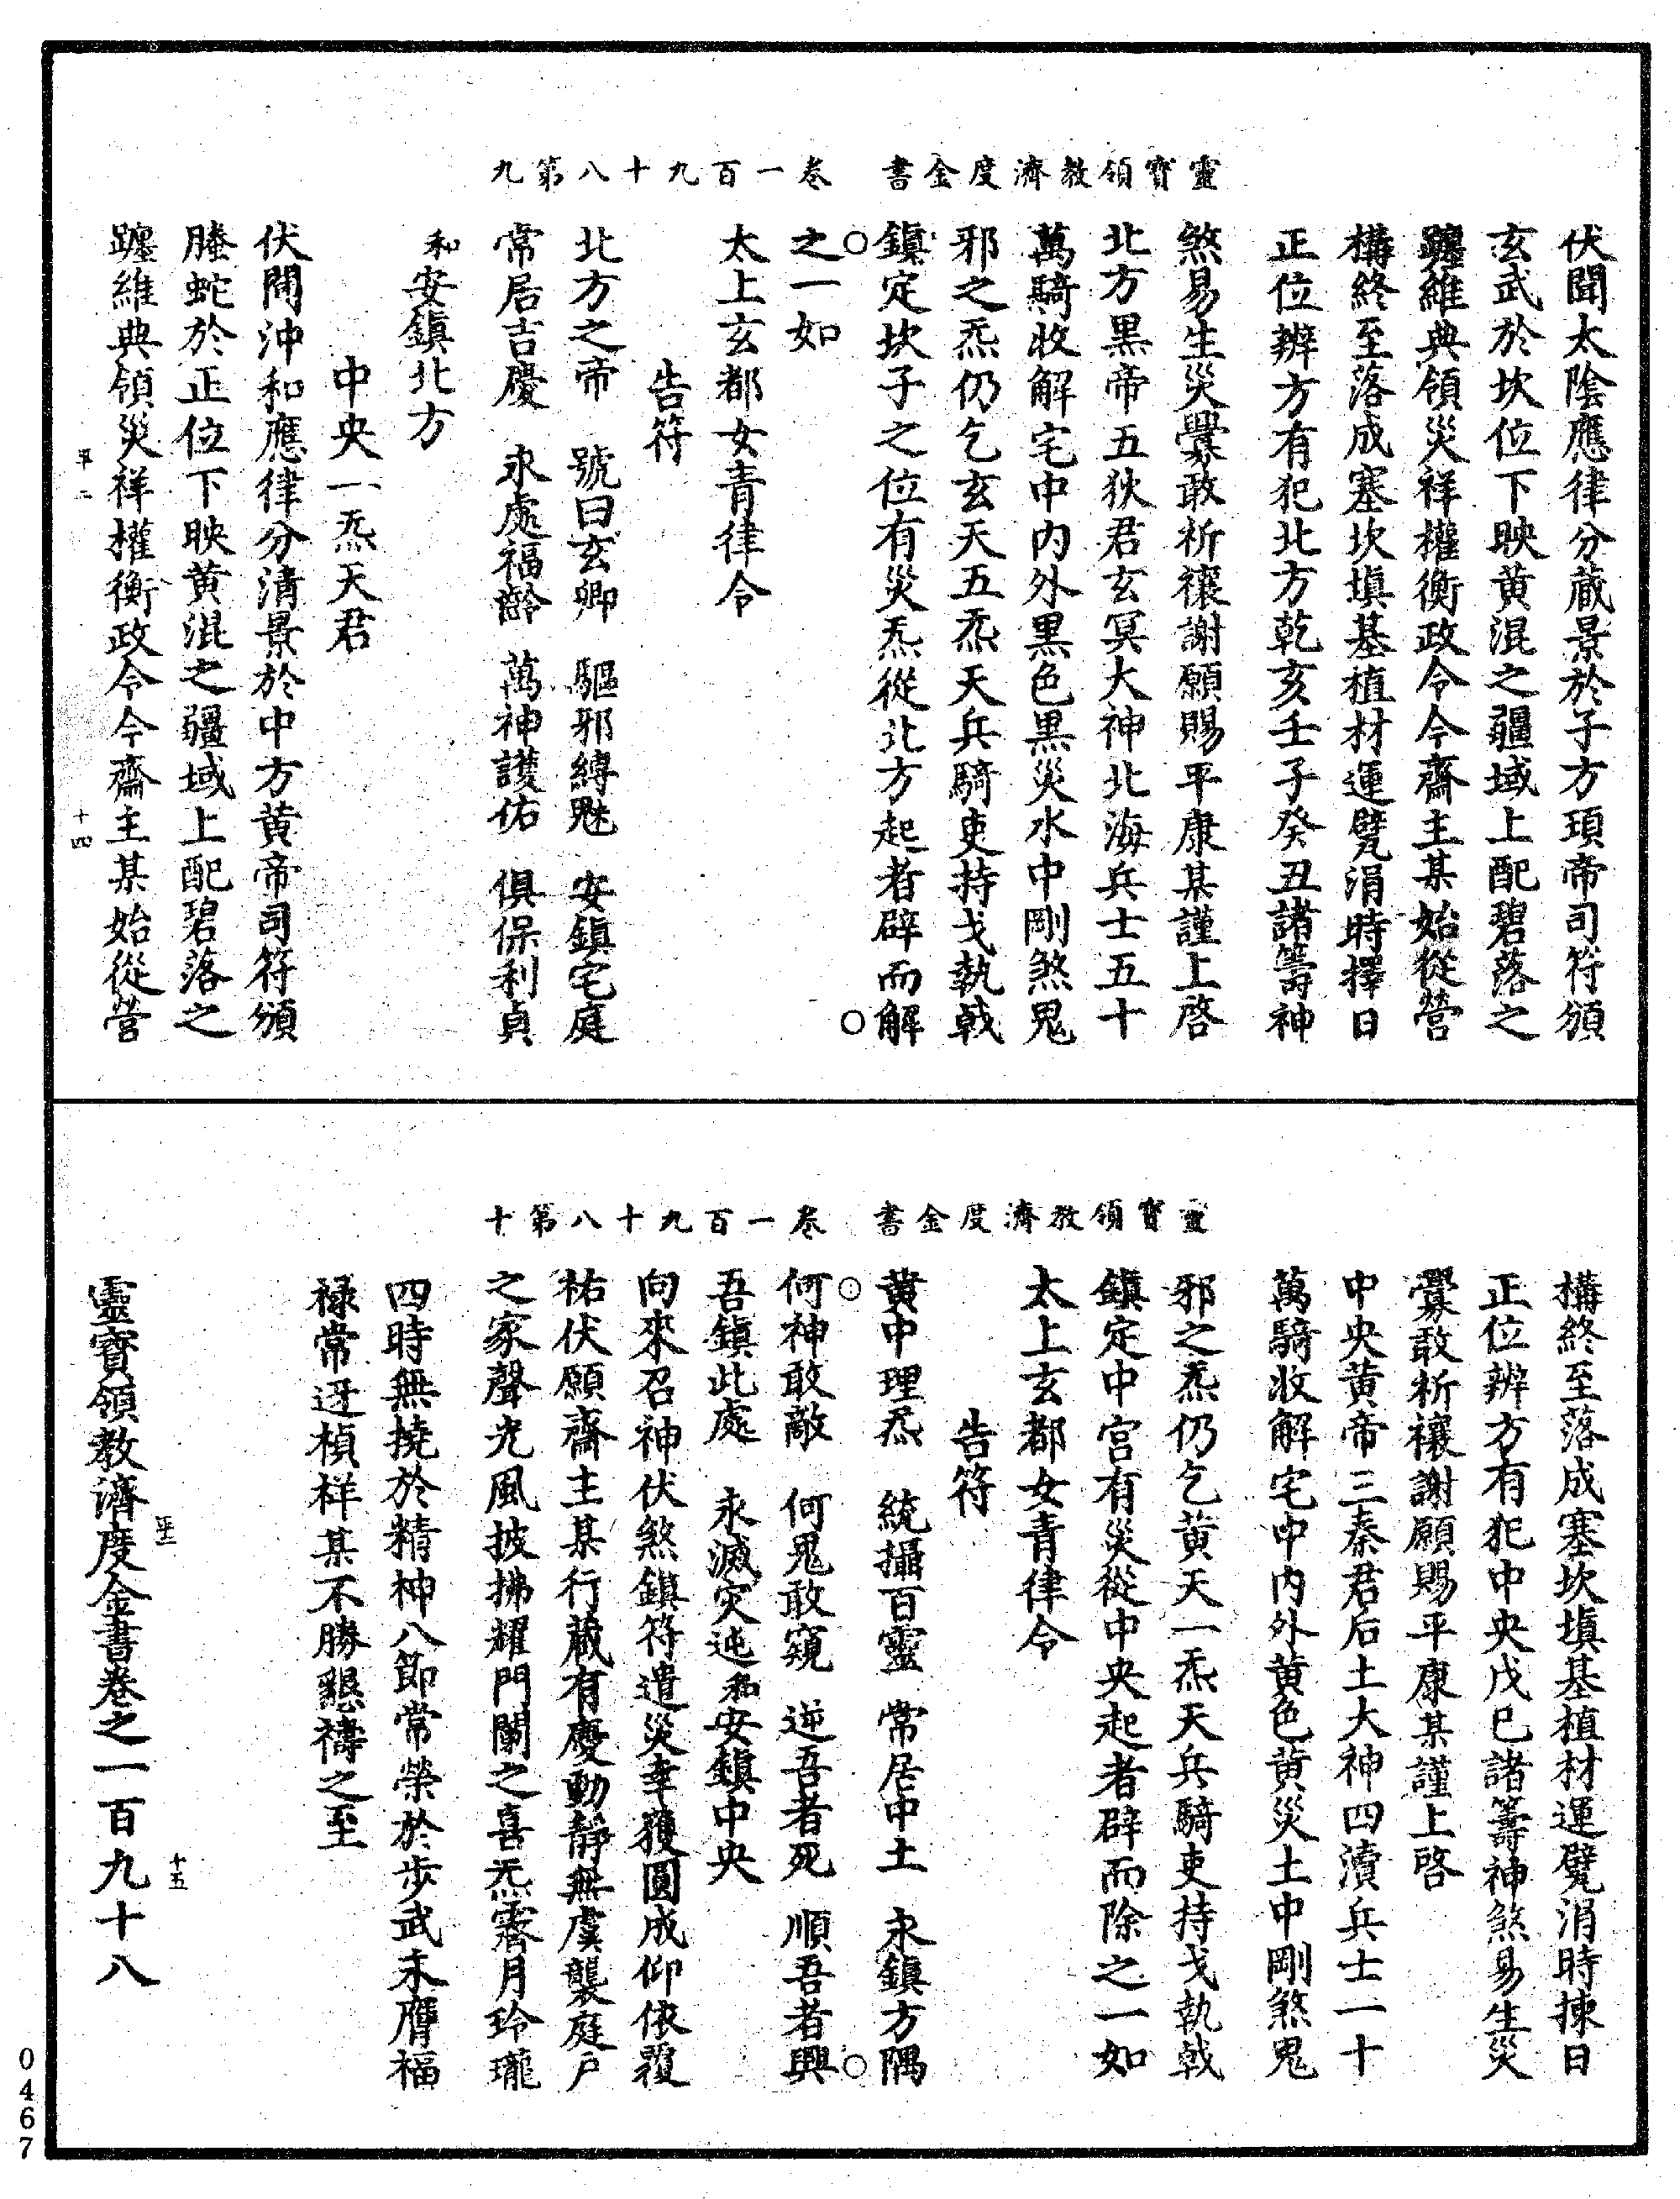 靈寶領教濟度金書 卷一百九十八第九
伏聞太陰應律分蔵景於子方頊帝司符頒
玄武於坎位下映黄混之疆域上配碧落之
躔維典領災祥權衡政令今齋主某始從營
構終至落成塞坎填基植材運甓涓時擇日
正位辨方有犯北方乾亥壬子癸丑諸籌神
煞易生災釁敢祈禳謝願賜平康某謹上啓
北方黒帝五狄君玄冥大神北海兵士五十
萬騎收解宅中内外黒色黒災水中剛煞鬼
邪之炁仍乞玄天五炁天兵騎吏持戈執戟
鎮定坎子之位有災炁從北方起者辟而解
之一如
太上玄都女青律令
告符
北方之帝 號曰玄卿 驅邪縛魅 安鎮宅庭
常居吉慶 永處福齡 萬神護佑 俱保利貞
和安鎮北方
中央一炁天君
伏聞沖和應律分清景於中方黄帝司符頒
螣蛇於正位下映黄混之疆域上配碧落之
躔維典領災祥權衡政令今齋主某始從营
平二 十四
靈寶領教濟度金書 卷一百九十八第十
構終至落成塞坎填基植材運甓涓時揀日
正位辨方有犯中央戊巳諸籌神煞易生災
釁敢祈禳謝願賜平康某謹上啓
中央黄帝三秦君后土大神四瀆兵士一十
萬騎收解宅中内外黄色黄災土中剛煞鬼
邪之炁仍乞黄天一炁天兵騎吏持戈執戟
鎮定中宫有災從中央起者辟而除之一如
太上玄都女青律令
告符
黄中理炁 統攝百靈 常居中土 永鎮方隅
何神敢敵 何鬼敢窺 逆吾者死 順吾者興
吾鎮此處 永滅灾迍和安鎮中央
向來召神伏煞鎮符遣災幸獲圓成仰依覆
祐伏願齋主某行蔵有慶動靜無虞襲庭戶
之家聲光風披拂耀門闌之喜炁霽月玲瓏
四時無撓於精神八節常榮於步武永膺福
禄常迓楨祥某不勝懇禱之至
平二 十五
靈寶領教濟度金書卷之一百九十八
0467